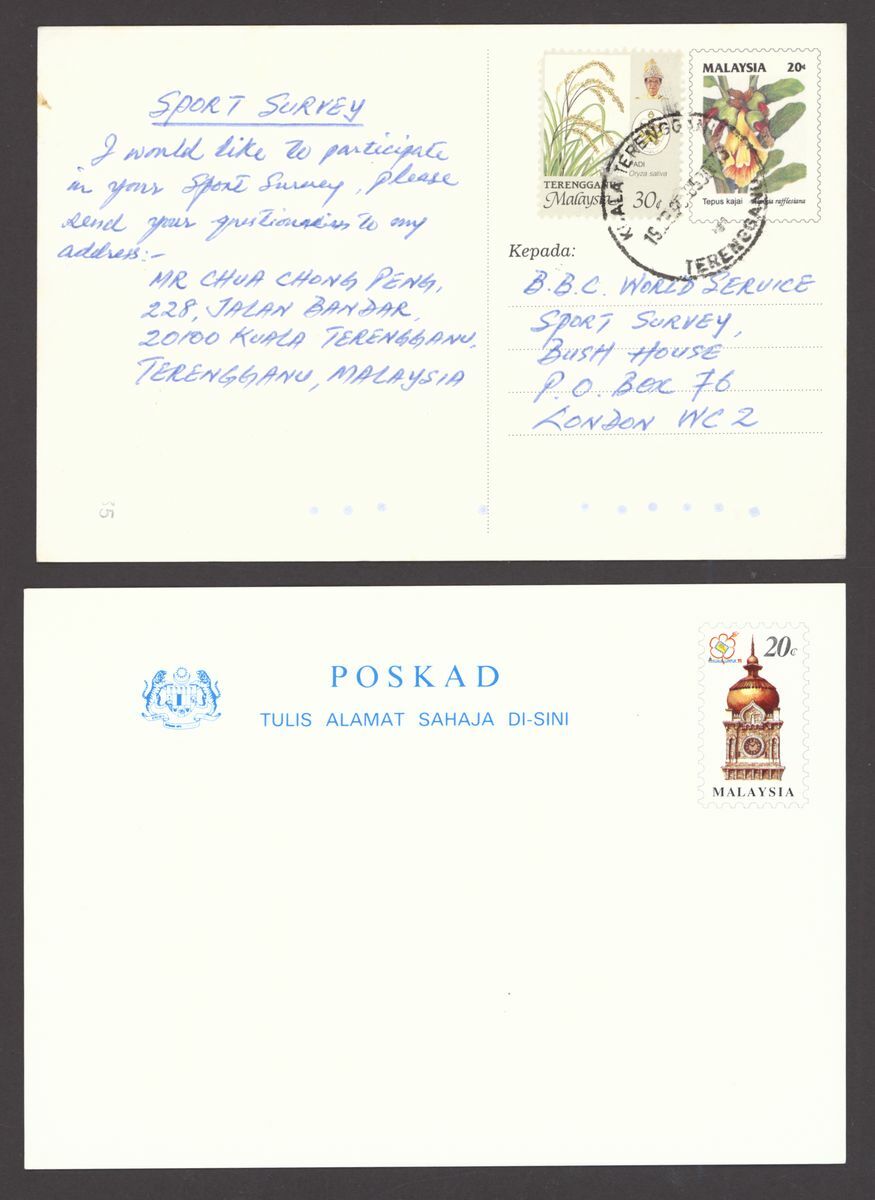 SPORT SURVEY
I would like to participate
in your Sport Survey, please
send your questionairs to my
address:-
MR CHUA CHONG PENG,
228, JALAN BANDAR,
20100 KUALA TERENGGANU,
TERENGGANU, MALAYSIA
35
PADI
Oryza sativa
TERENGGANU
Malaysia 30¢
MALAYSIA 20¢
Tepus kajai rafflesiana
KUALA TERENGGANU
TERENGGANU
Kepada:
B.B.C. WORLD SERVICE
SPORT SURVEY,
BUSH HOUSE
P.O. BOX 76
LONDON WC2
POSKAD
TULIS ALAMAT SAHAJA DI-SINI
20c
MALAYSIA